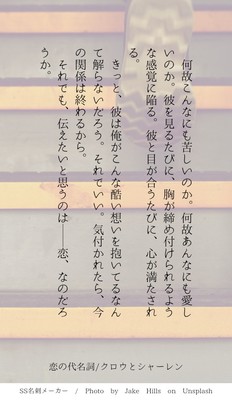 何故こんなにも苦しいのか。何故あんなにも愛し
いのか。彼を見るたびに、胸が締め付けられるよう
な感覚に陥る。彼と目が合うたびに、心が満たされ
る。
きっと、彼は俺がこんな酷い想いを抱いてるなん
て解らないだろう。それでいい。気付かれたら、今
の関係は終わるから。
それでも、伝えたいと思うのは――恋、なのだろ
うか。
恋の代名詞/クロウとシャーレン
SS名刺メーカー / Photo by Jake Hills on Unsplash